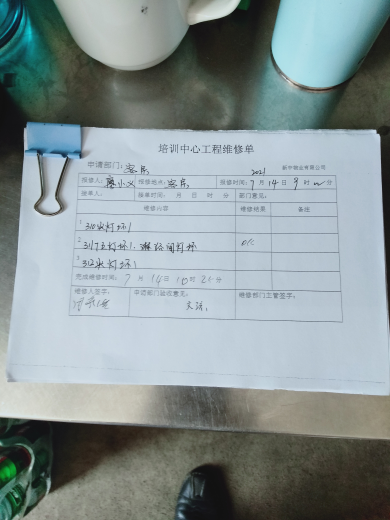 培训中心工程维修单
申请部门：客房 2021 新中物业有限公司
报修人： 小义 报修地点：客房 报修时间：7月14日9时 分
接单人： 接单时间： 月 日 时 分 部门意见：
维修内容 维修结果 备注
1 310 灯坏1
2 317 灯坏1. 坏 OK
3 312 灯坏1
完成维修时间：7月14日10时25分
维修人签字： 申请部门验收意见： 维修部门主管签字：